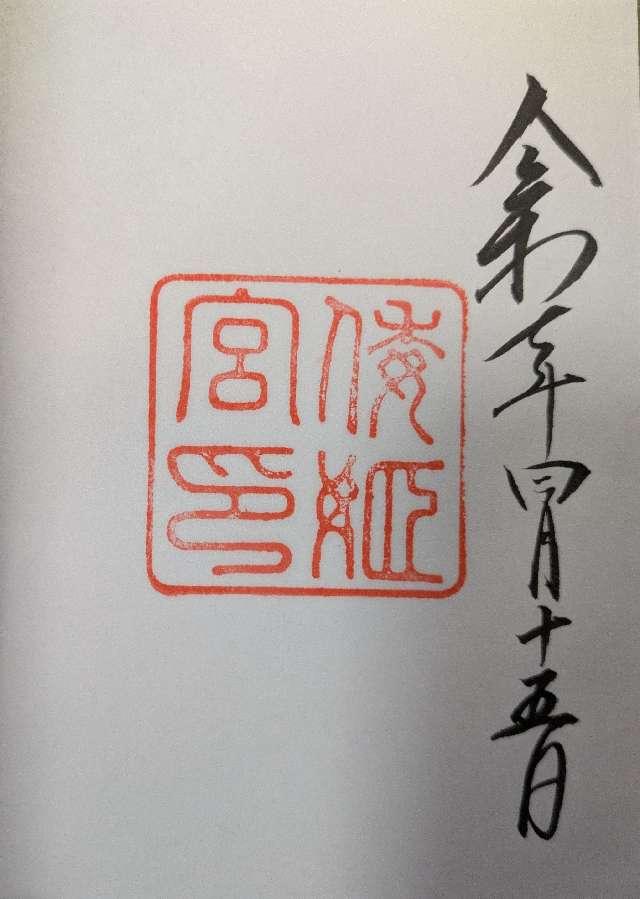 令和七年四月十五日
倭姫
宮印